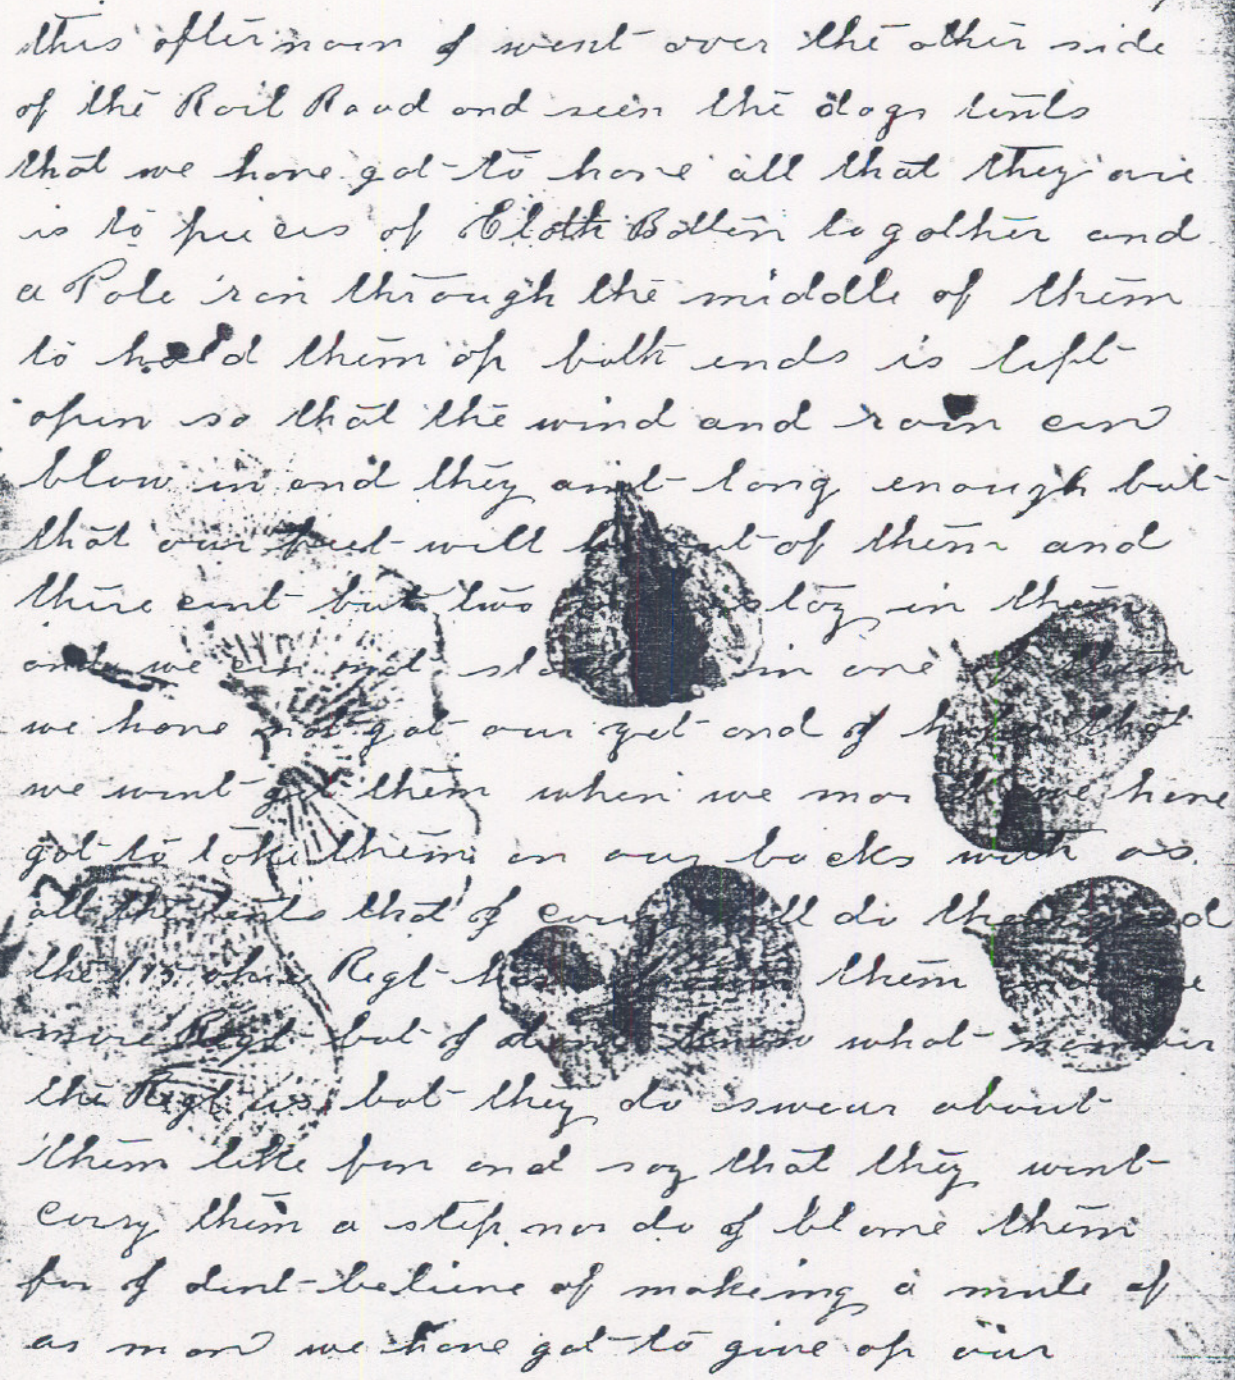 this after noon I went over the other side
of the Rail Road and seen the dogs tents
that we have got to have all that they are
is to pieces of Cloth Botten to gother and
a Pole ran through the middle of them
to hold them op both ends is left
open so that the wind and rain can
blow in and they aint long enough but
that our feet will out of them and
there aint but two stay in them
and we can not in one of them
we have not got our yet and I hope that
we wont get them when we we have
got to take them on our backs with os
all the tents that I carry will do them good
the 115 ohio Regt have them
more Regt but I dont know what nomber
the Regt is but they do swear about
them like fon and say that they wont
carry them a step nor do I blame them
for I dont believe of makeing a mule of
as man we have got to give op our